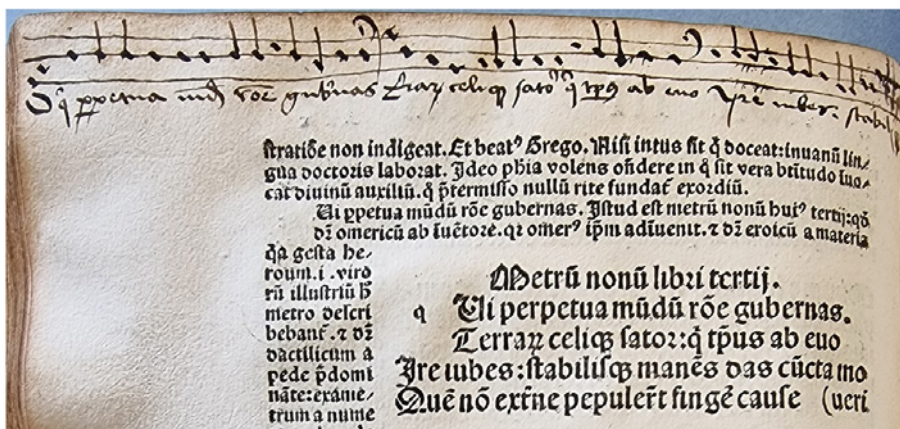 O q̇ ꝑpetua mūdū rōe gub̄nas Terraꝝ celiqꝫ satoꝛ q̇ tp̄s ab euo Ire iubes. stabil
ſtratiōe non indigeat. Et beatꝰ Grego. Niſi intus ſit q̇ doceat:inuanū lin⸗
gua doctoris laborat. Ideo ph̄ia volens oñdere in q̇ ſit vera btītudo īuo⸗
cat diuinū auxiliū. q̇ p̄termiſſo nullū rite fundat̄ exordiū.
Ui ꝑpetua mūdū rōe gubernas. Iſtud eſt metrū nonū huiꝰ tertij:qd̄
dꝛ̄ omericū ab īuētore.qꝛ omerꝰ ip̄m adīuenit.⁊ dꝛ̄ eroicū a materia
q̄a geſta he⸗
roum.i.viro
rū illuſtriū h̄
metro deſcri
bebant̄.⁊ dꝛ̄
dactilicum a
pede p̄domi
nāte:exame⸗
trum a nume
Metrū nonū libri tertij.
q Ui perpetua mūdū rōe gubernas.
Terraꝝ celiqꝫ ſator:q̇ tp̄us ab euo
Ire iubes:ſtabiliſqꝫ manēs das cūcta mo
Quē nō ext̄ne pepulert̄ fingē̄ cauſe (ueri